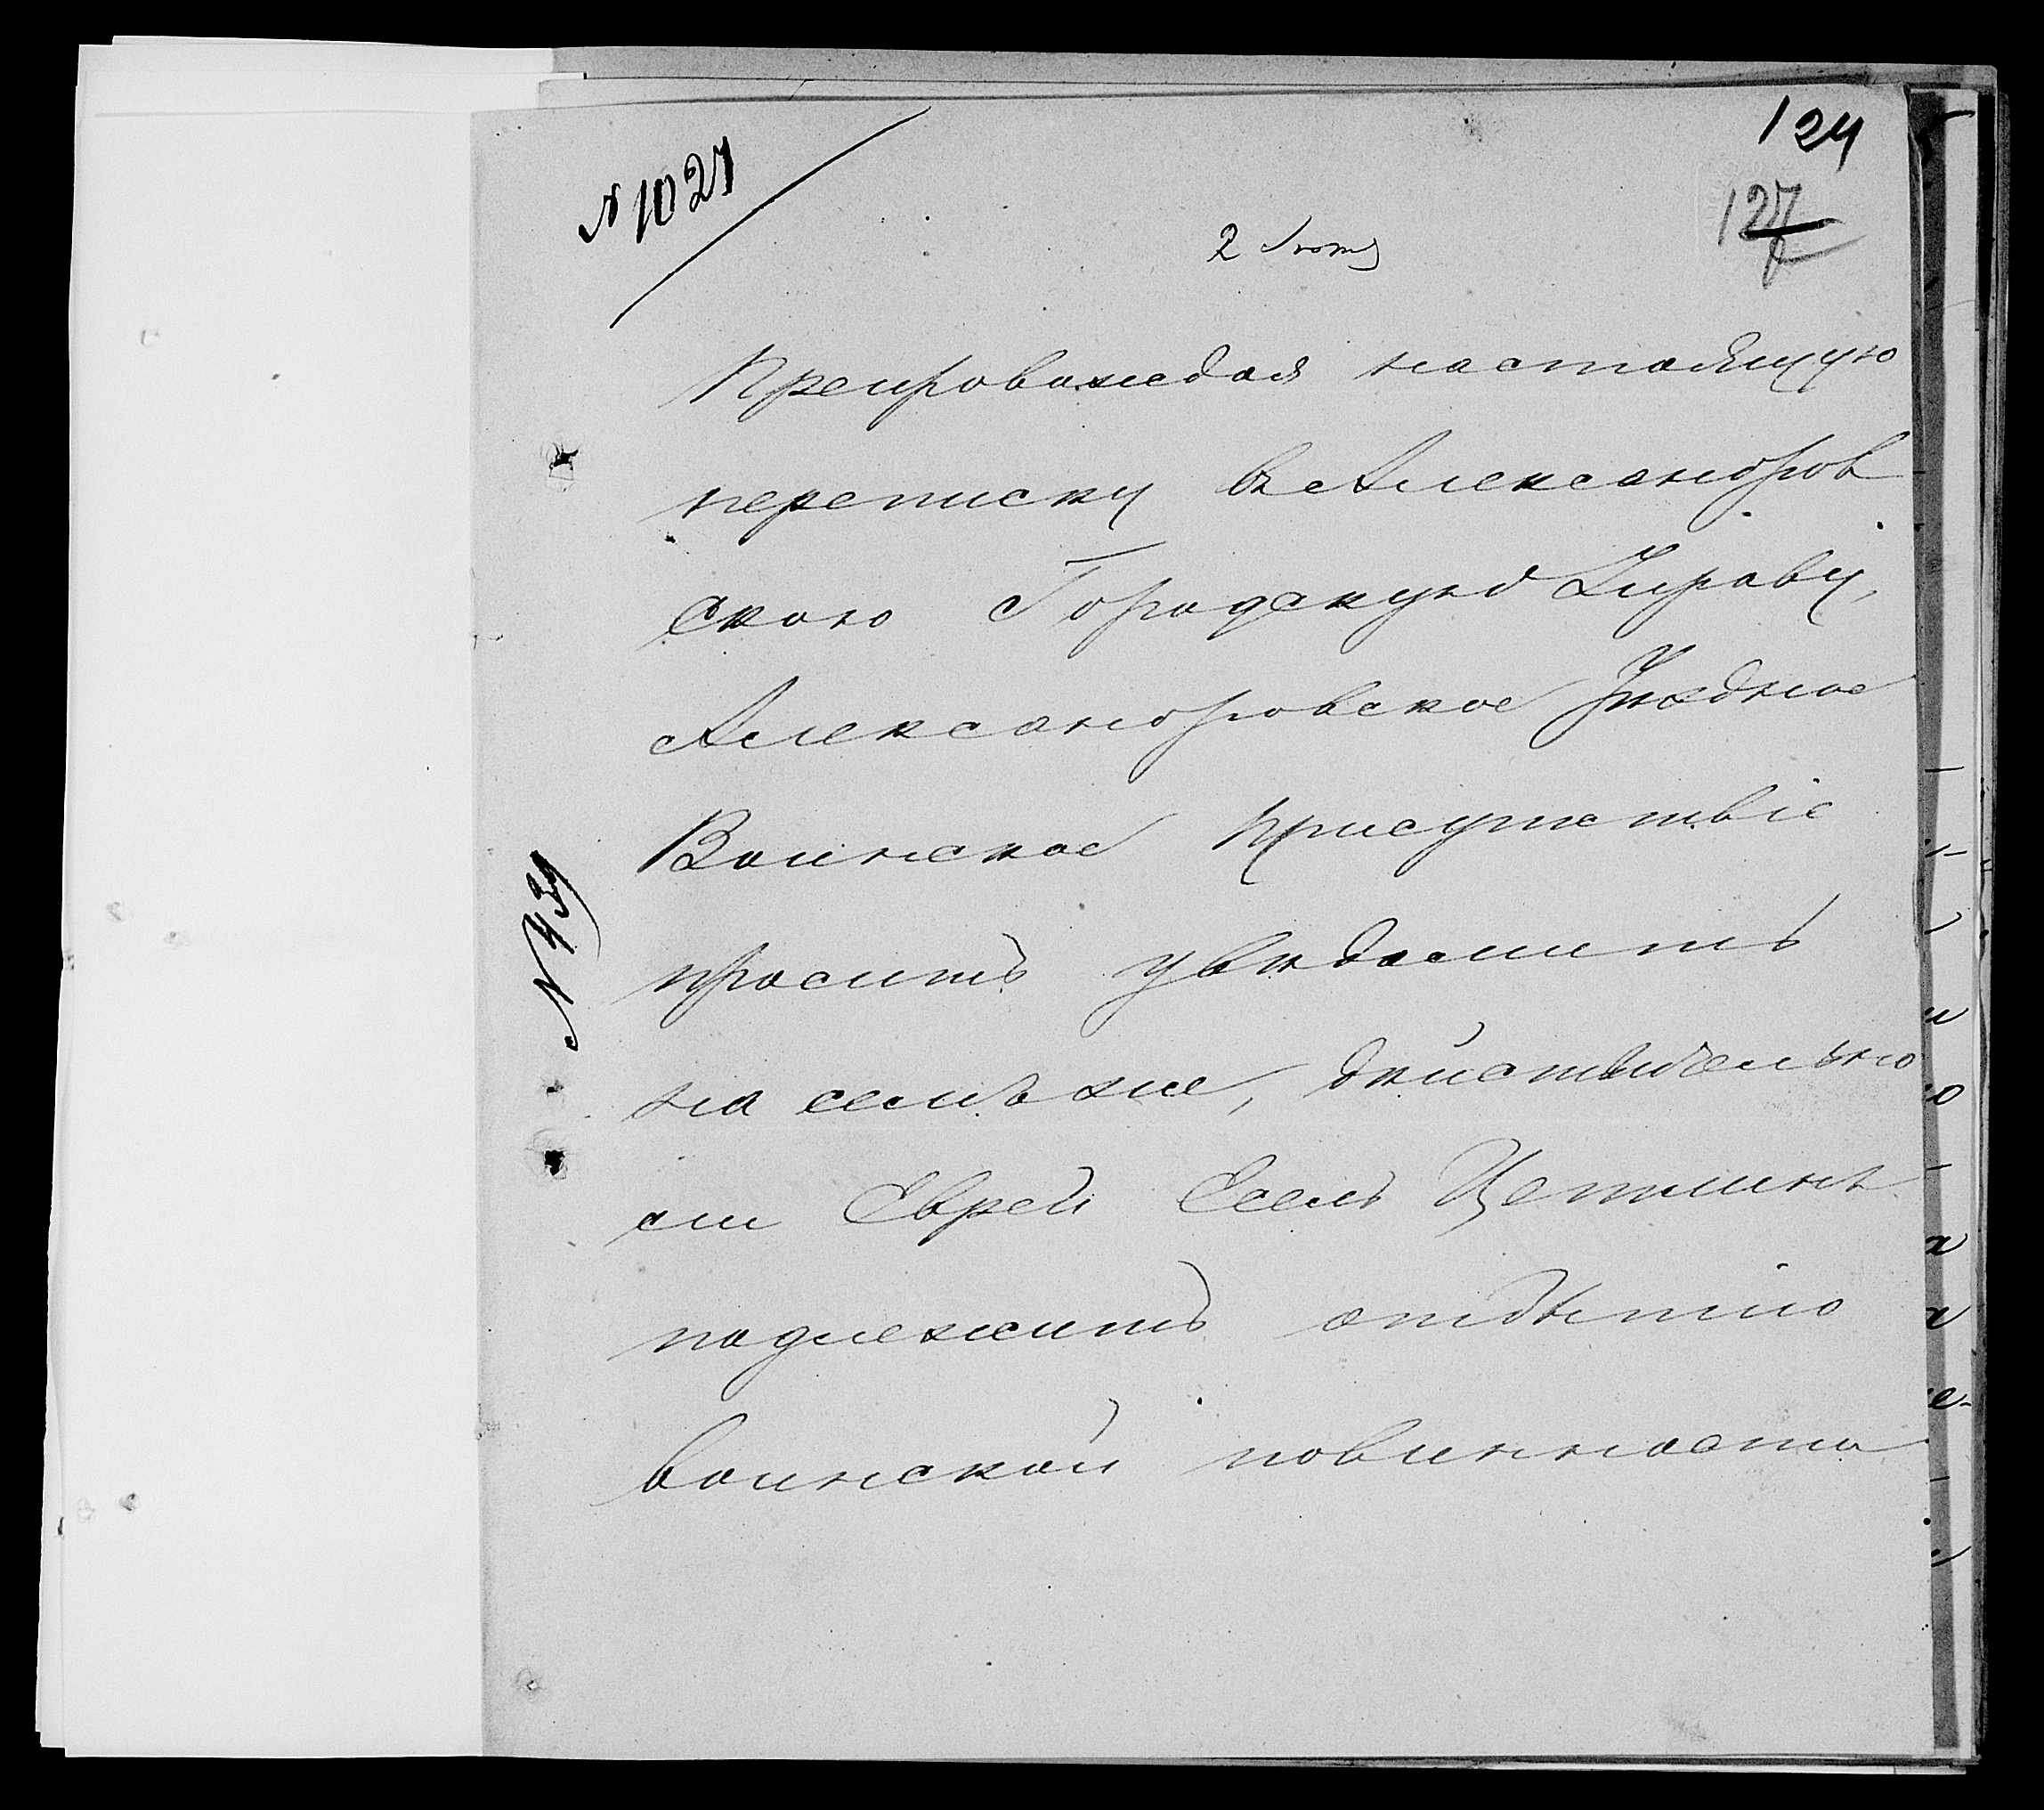 124
№ 1027
127
2 Стол
Препровождая настоящую
переписку въ Александров
скою Городскую Управу,
Александровское Уѣздное
Воинское присутствіе
проситъ увѣдомить
на семъ же, дѣйствительно
ли Еврей Есель Цетлинъ
подлежитъ отбытію
воинской повинности
№ 439